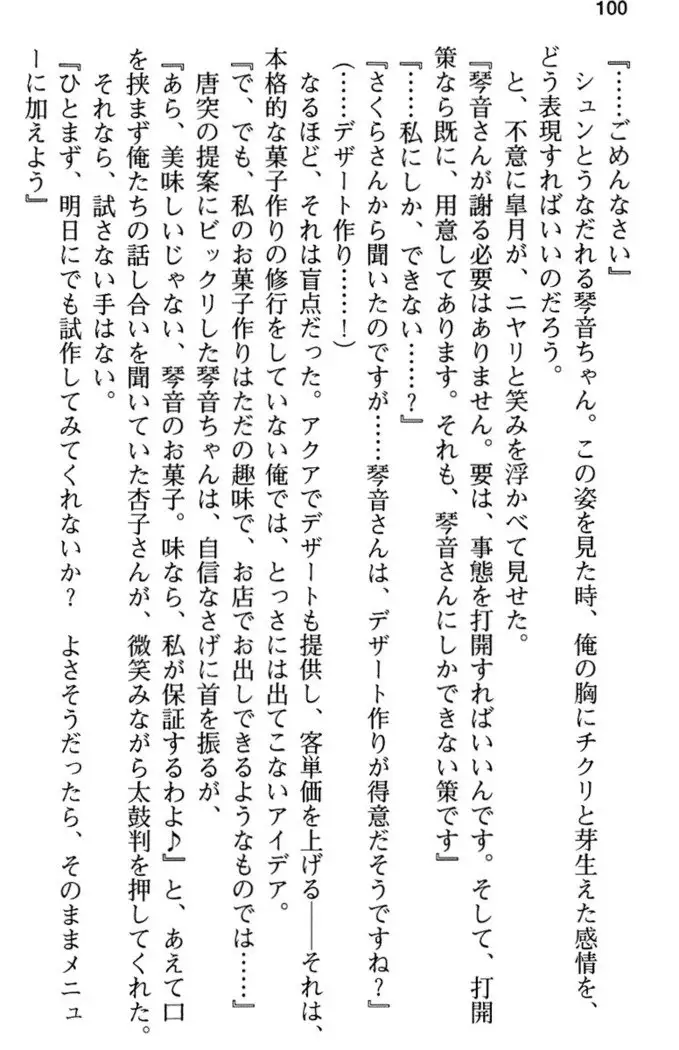 100
『……ごめんなさい』
シュンとうなだれる琴音ちゃん。この姿を見た時、俺の胸にチクリと芽生えた感情を、
どう表現すればいいのだろう。
と、不意に皐月が、ニヤリと笑みを浮かべて見せた。
『琴音さんが謝る必要はありません。要は、事態を打開すればいいんです。そして、打開
策なら既に、用意してあります。それも、琴音さんにしかできない策です』
『……私にしか、できない……？』
『さくらさんから聞いたのですが……琴音さんは、デザート作りが得意だそうですね？』
(……デザート作り……！)
なるほど、それは盲点だった。アクアでデザートも提供し、客単価を上げる――それは、
本格的な菓子作りの修行をしていない俺では、とっさには出てこないアイデア。
『で、でも、私のお菓子作りはただの趣味で、お店でお出しできるようなものでは……』
唐突の提案にビックリした琴音ちゃんは、自信なさげに首を振るが、
『あら、美味しいじゃない、琴音のお菓子。味なら、私が保証するわよ♪』と、あえて口
を挟まず俺たちの話し合いを聞いていた杏子さんが、微笑みながら太鼓判を押してくれた。
それなら、試さない手はない。
『ひとまず、明日にでも試作してみてくれないか？　よさそうだったら、そのままメニュ
ーに加えよう』